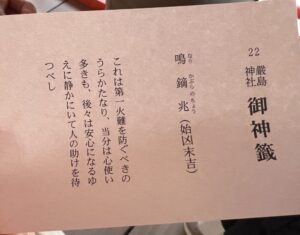 22
厳島神社 御神籤
なり かぶら の ちょう
鳴鏑兆(始凶末吉)
これは第一火難を防ぐべきの
うらかたなり、当分は心使い
多きも、後々は安心になるゆ
えに静かにいて人の助けを待
つべし